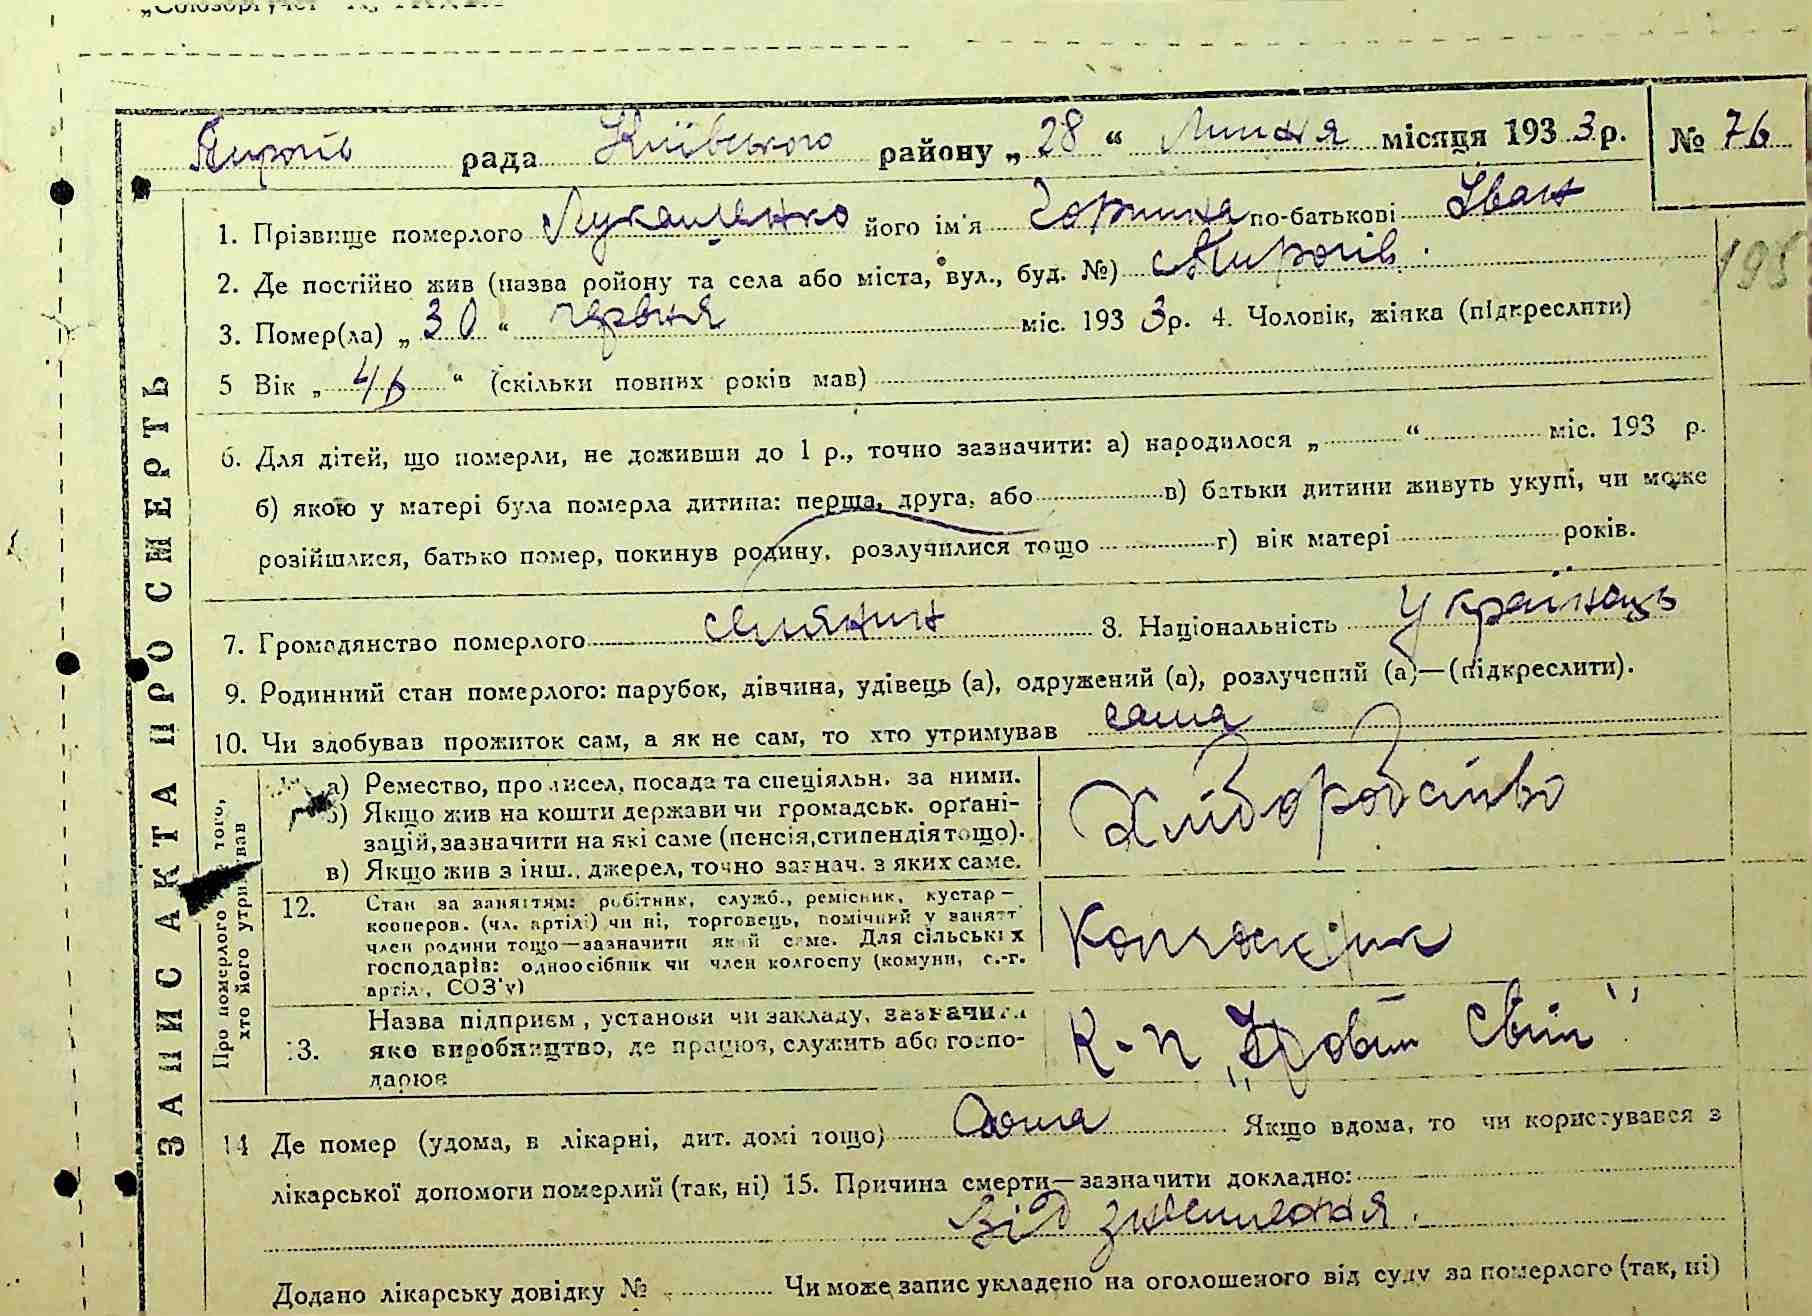 Пирогів рада Київського району „ 28 “ Липня місяця 193 3 р. № 76
1. Прізвище померлого Лукашенко його ім'я по-батькові Іван
2. Де постійно жив (назва ройону та села або міста, вул., буд. №) с Пирогів
3. Помер(ла) „ 30 “ червня міс. 193 3 р. 4. Чоловік, жінка (підкреслити)
5 Вік „ 46 “ (скільки повних років мав)
195
6. Для дітей, що померли, не доживши до 1 р., точно зазначити: а) народилося „ “ міс. 193 р.
б) якою у матері була померла дитина: перша, друга, або в) батьки дитини живуть укупі, чи може
розійшлися, батько помер, покинув родину, розлучилися тощо г) вік матері років.
7. Громадянство померлого селянин 8. Національність Українець
9. Родинний стан померлого: парубок, дівчина, удівець (а), одружений (а), розлучений (а)—(підкреслити).
10. Чи здобував прожиток сам, а як не сам, то хто утримував сама
ЗАПИС АКТА ПРО СМЕРТЬ
Про померлого того,
хто його утримував
а) Ремество, промисел, посада та спеціяльн. за ними.
б) Якщо жив на кошти держави чи громадськ. орґані-
зацій, зазначити на які саме (пенсія, стипендія тощо).
в) Якщо жив з інш. джерел, точно зазнач. з яких саме.
Хліборобство
12. Стан за заняттям: робітник, служб., ремісник, кустар—
кооперов. (чл. артілі) чи ні, торговець, помічний у занятт
член родини тощо—зазначити який саме. Для сільських
господарів: одноосібник чи член колгоспу (комуни, с.-г.
артілі, СОЗ'у)
Колгоспник
13. Назва підприєм, установи чи закладу, зазначити
яке виробництво, де працює, служить або госпо-
дарює
К-п „Новий Світ"
14 Де помер (удома, в лікарні, дит. домі тощо) Дома Якщо вдома, то чи користувався з
лікарської допомоги померлий (так, ні) 15. Причина смерти—зазначити докладно:
Від знесилення.
Додано лікарську довідку № Чи може запис укладено на оголошеного від суду за померлого (так, ні)